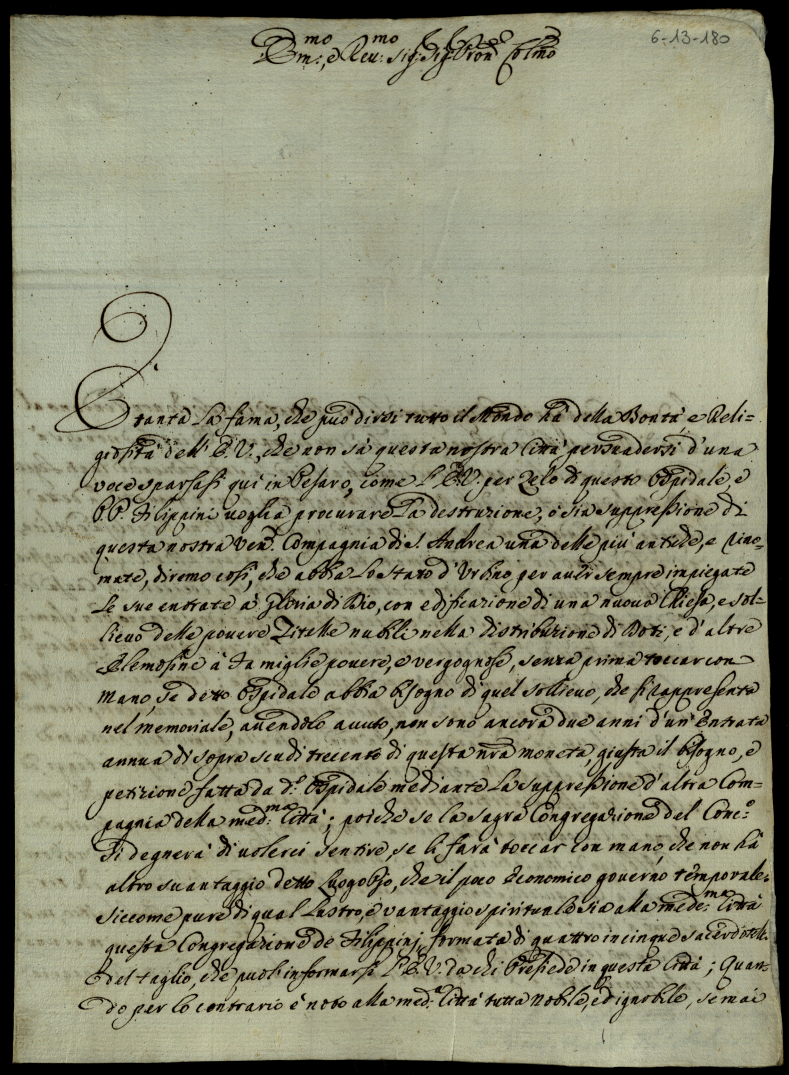 6-13-180
Em:mo, e Rev:mo Sig: Sig: Pron Colmo
È tanta la fama, che può dirsi tutto il Mondo hà della Bontà, e Reli=
giosità dell' E.V., che non sà questa nostra Città persuadersi d'una
voce sparsasi qui in Pesaro, come l'E.V. per zelo di questo Ospidale, e
PP. Filippini voglia procurare la destruzione, ò sia suppressione di
questa nostra Ven: Compagnia di S. Andrea una delle più antiche, e rino=
mate, diremo così, che abbia lo Stato d'Urbino per aver sempre impiegate
le sue entrate à Gloria di Dio, con edificazione di una nuova Chiesa, e sol=
lievo delle povere Zitelle nubili nella distribuzione di Doti, e d'altre
Elemosine à famiglie povere, e vergognose, senza prima toccar con
mano, se detto Ospidale abbia bisogno di quel sollievo, che si rappresenta
nel memoriale, avendolo avuto, non sono ancora due anni d'un' Entrata
annua di sopra scudi trecento di questa nrã moneta, giusta il bisogno, e
petizione fatta da d.º Ospidale mediante la suppressione d'altra Com=
pagnia della med:ma Città; poiche se la sagra Congregazione del Conc.º
si degnerà di volerci sentire, se li farà toccar con mano, che non hà
altro svantaggio detto Luogo Pio, che il poco economico governo temporale,
siccome pure di qual Lustro, e vantaggio spirituale sia alla mede:ma Città
questa Congregazione de Filippini, formata di quattro in cinque sacerdoti
del taglio, che puole informarsi l'E.V. da chi Presiede in questa Città; Quan=
do per lo contrario è noto alla med.ª Città tutta nobile, ed ignobile, se mai